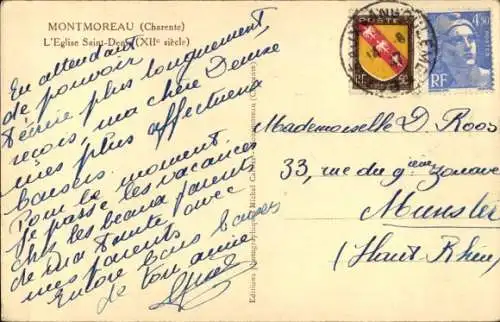 MONTMOREAU (Charente)
L'Eglise Saint-Denis (XIIe siècle)
En attendant
de pouvoir
t'écrire plus longuement
reçois, ma chère Denise
mes plus affectueux
baisers.
Pour le moment,
je passe les vacances
chez les beaux parents
de ma tante avec
mes parents
Encore bons baisers
de ton amie
POSTE
RF
4F50
RF
Mademoiselle D. Roos
33, rue du 9ième Zouave
Munster
(Haut Rhin)